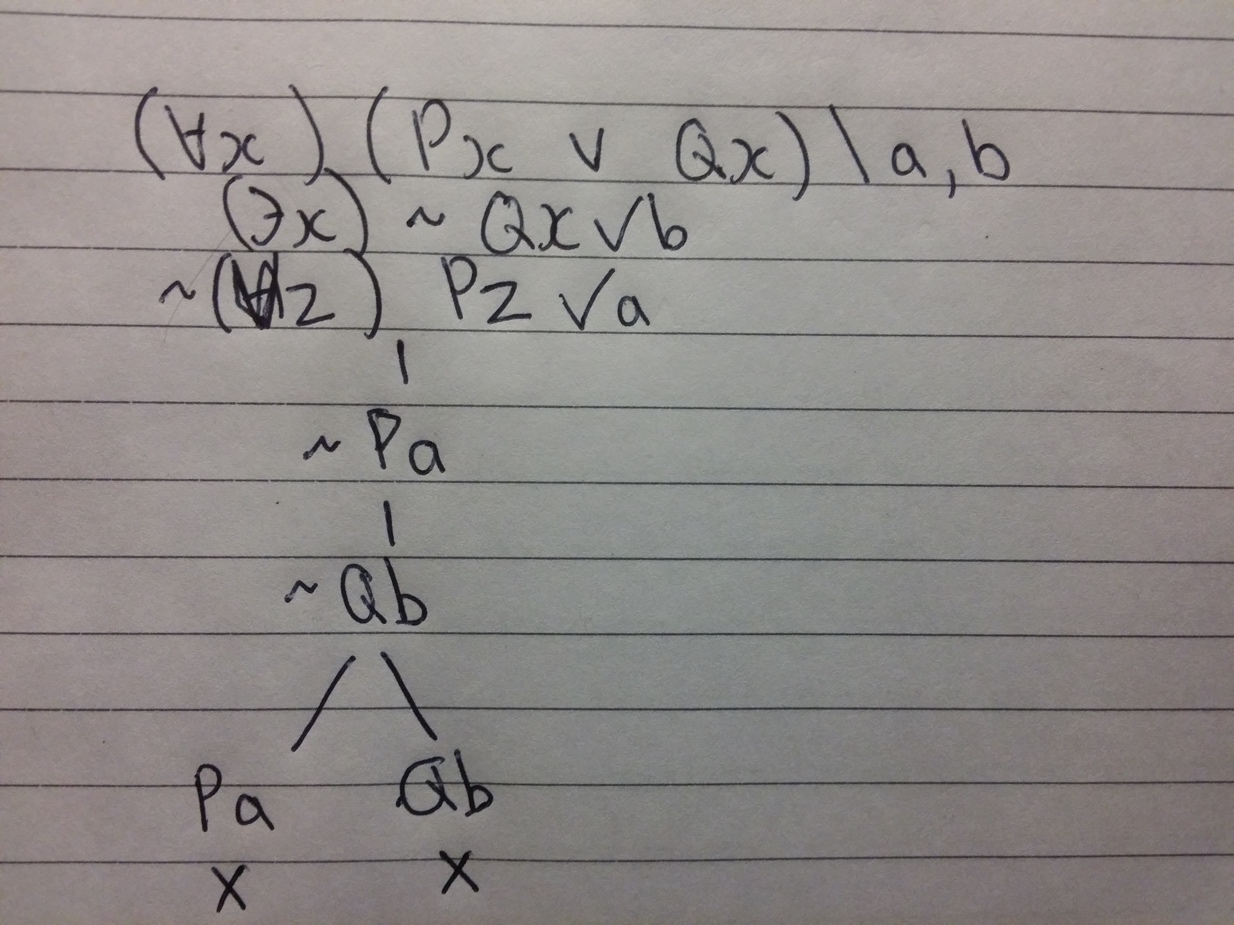 (∀x) (Px ∨ Qx) \ a, b
(∃x) ~ Qx ✓b
~(∀z) Pz ✓a
~ Pa
~ Qb
Pa Qb
X X